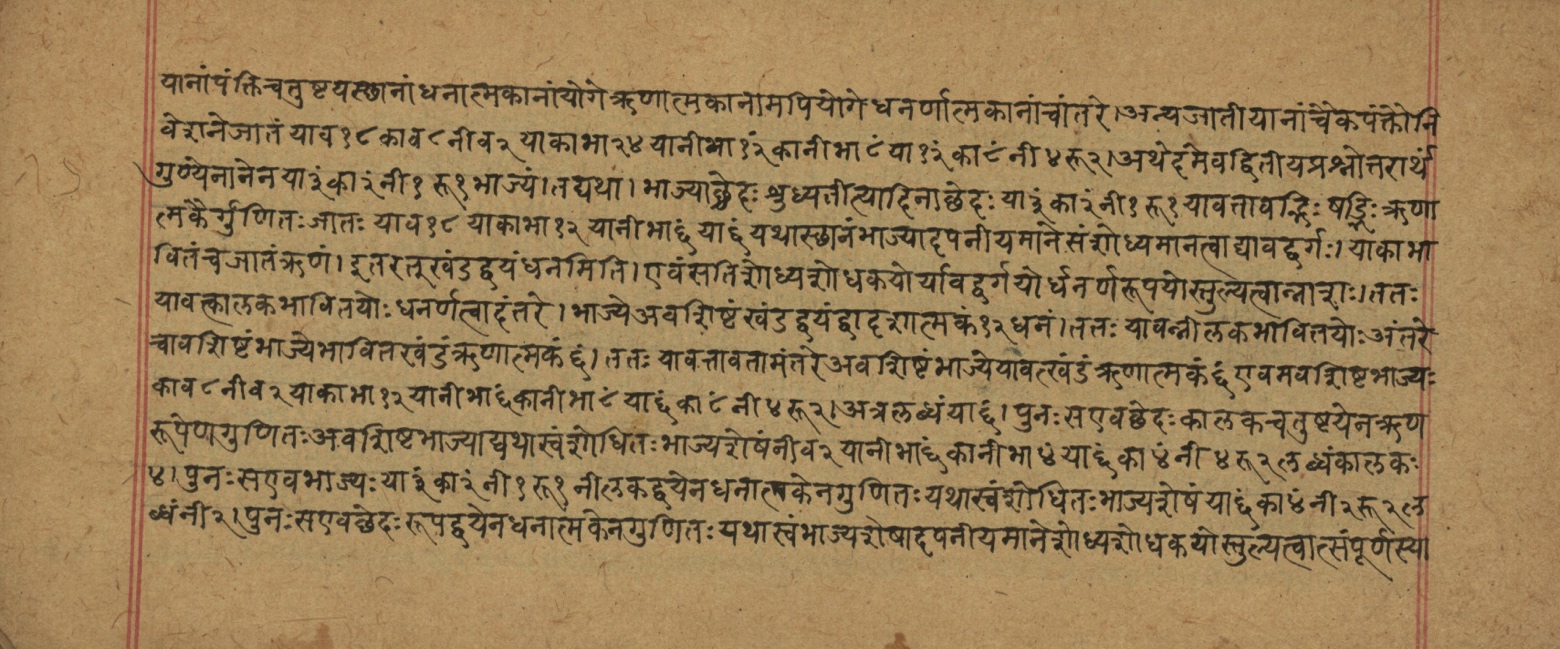 यानांपंक्तिचतुष्टयस्छानांधनात्मकानांयोगेऋणात्मकानामपियोगेधनर्णात्मकानांचांतरे।अन्यजातीयानांचैकपंक्तौनि
वेशनेजातंयाव१८काव८नीव२याकाभा२४यानीभा१२ं कानीभा८ंया१२ंका८ंनी४रू२।अथेदमेवद्वितीयप्रश्नोत्तरार्थं
गुण्येनानेनया३ंका२ंनी१रू१भाज्यं।तद्यथा।भाज्याछेदःशुध्यतीत्यादिनाछेदःया३ंका२ंनी१रू१यावत्तावद्भिःषड्भिःऋणा
त्मकैर्गुणितःजातःयाव१८याकाभा१२यानीभा६ंया६ंयथास्छानंभाज्यादपनीयमानेसंशोध्यमानत्वाद्यावद्वर्गः।याकाभा
वितंचजातंऋणं।इतरत्तूखंडद्वयंधनमिति।एवंसतिशोध्यशोधकयोर्यावद्वर्गयोर्धनर्णरूपयोस्तुल्यत्वान्नाशः।ततः
यावत्कालकभावितयोःधनर्णत्वादंतरे।भाज्येअवशिष्टंखंडद्वयंद्वादशात्मकं१२धनं।ततःयावन्नीलकभावितयोःअंतरे
चावशिष्टंभाज्येभावितखंडंऋणात्मकं६ं।ततःयावत्तावतामंतरेअवशिष्टंभाज्येयावत्खंडंऋणात्मकं६ंएवमवशिष्टभाज्यः
काव८नीव२याकाभा१२यानीभा६ंकानीभा८ंया६ंका८ंनी४रू२।अत्रलब्धंया६ं।पुनःसएवछेदःकालकचतुष्टयेनऋण
रूपेणगुणितःअवशिष्टभाज्याद्यथास्वंशोधितःभाज्यशेषंनीव२यानीभा६ंकानीभा४ंया६ंका४ंनी४रू२लब्धंकालकः
४।पुनःसएवभाज्यःया३ंका२ंनी१रू१नीलकद्वयेनधनात्मकेनगुणितःयथास्वंशोधितःभाज्यशेषंया६ंका४ंनी२रू२ल
ब्धंनी२।पुनःसएवछेदःरूपद्वयेनधनात्मकेनगुणितःयथास्वंभाज्यशेषादपनीयमानेशोध्यशोधकयोस्तुल्यत्वात्संपूर्णस्या